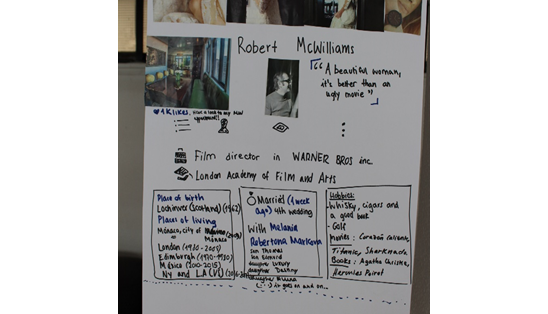 Robert McWilliams
"A beautiful woman,
it's better than an
ugly movie"
1K likes. Have a look to my new
apartment!!
Film director in WARNER BROS inc.
London Academy of Film and Arts
Place of birth
Lochinver (Scotland) (1962)
Places of living
Mónaco, city of Mónaco
London (1980-2007)
Edinburgh (1970-1980)
México (2010-2015)
NY and LA (VL)
Married (1 week
ago) 4th wedding
With Melania
Robertona Markova
Son Thomas
Son Edward
daughter Luxury
daughter Destiny
(...) it goes on and on...
Hobbies:
- Whisky, cigars and
a good book
- Golf
Movies: Corazón caliente,
Titanic, Sharknado.
Books: Agatha Christie,
Hercules Poirot